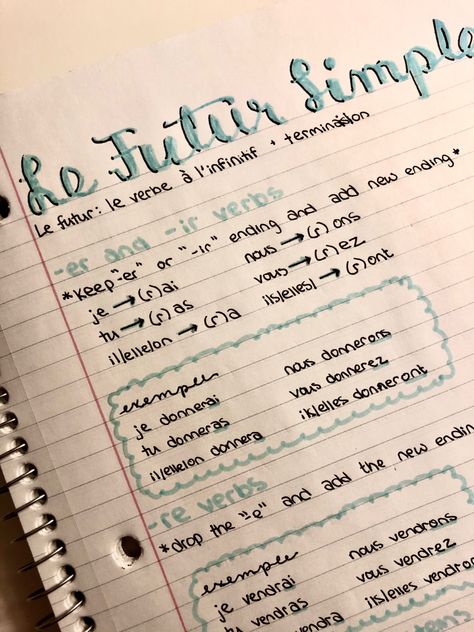 Le Futur Simple
Le futur: le verbe à l'infinitif + terminaision
-er and -ir verbs
*Keep "-er" or "-ir" ending and add new ending*
je → (r)ai nous → (r)ons
tu → (r)as vous → (r)ez
il/elle/on → (r)a ils/elles/ → (r)ont
exemple
je donnerai nous donnerons
tu donneras vous donnerez
il/elle/on donnera ils/elles donneront
-re verbs
*drop the "-e" and add the new ending
exemple
je vendrai nous vendrons
tu vendras vous vendrez
ils/elles vendron